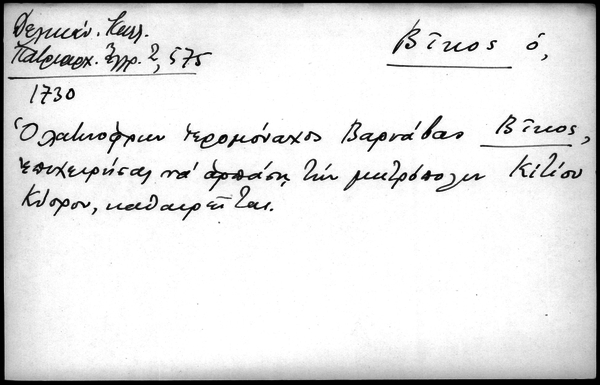 Δελικάν. Καλλ.
Πατριαρχ. Ἔγγρ. 2, 575
Βῖκος ὁ,
1730
Ὁ λατινόφρων ἱερομόναχος Βαρνάβας Βῖκος,
ἐπιχειρήσας νά ἁρπάση τήν μητρόπολιν Κιτίου
Κύπρου, καθαιρεῖται.